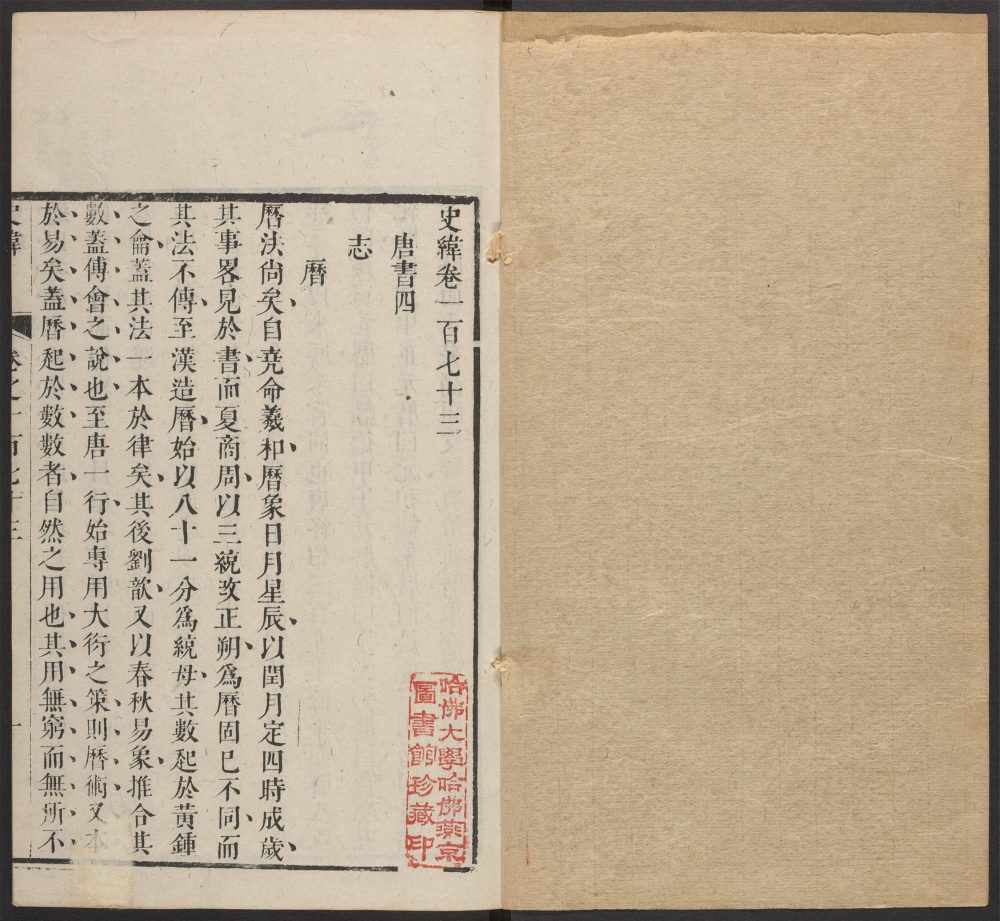 史緯卷一百七十三
唐書四
志
曆
曆法尚矣自堯命羲和曆象日月星辰以閏月定四時成歲
其事畧見於書而夏商周以三統改正朔爲曆固已不同而
其法不傳至漢造曆始以八十一分爲統母其數起於黃鍾
之龠蓋其法一本於律矣其後劉歆又以春秋易象推合其
數蓋傅會之說也至唐一行始專用大衍之策則曆術又本
於易矣蓋曆起於數數者自然之用也其用無窮而無所不
史緯 卷之一百七十三 一
哈佛大學哈佛燕京
圖書館珍藏印